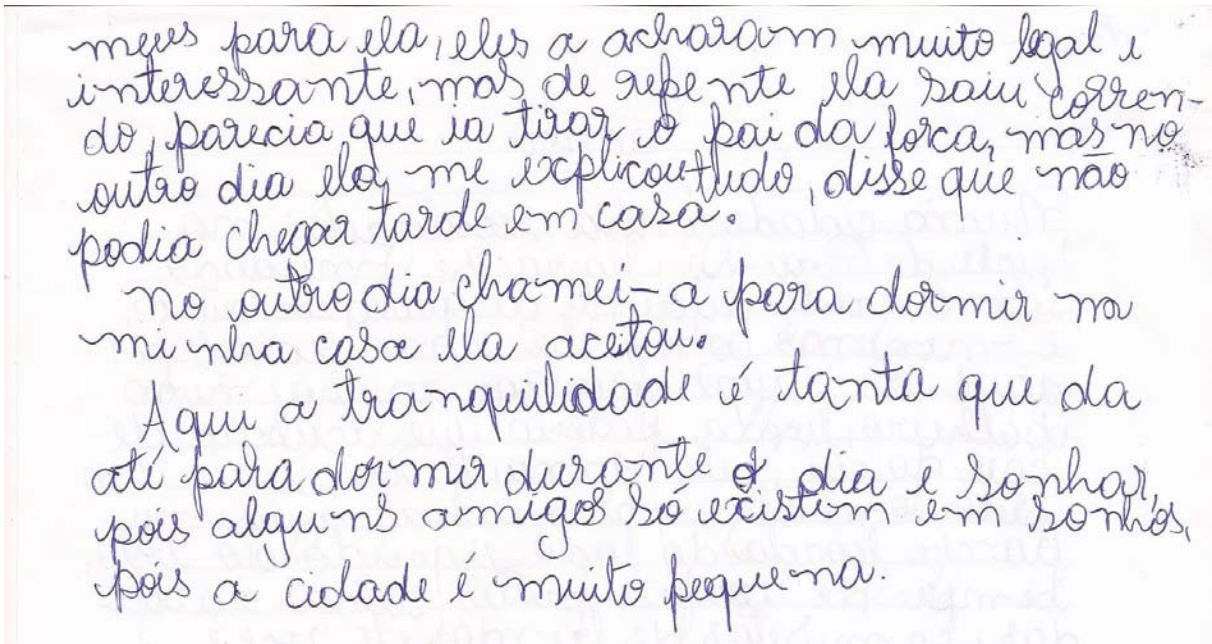 meus para ela, eles a acharam muito legal e
interessante, mas de repente ela saiu corren-
do, parecia que ia tirar o pai da forca, mas no
outro dia ela me explicou tudo, disse que não
podia chegar tarde em casa.
no outro dia, chamei-a para dormir na
minha casa ela aceitou.
Aqui a tranquilidade é tanta que da
até para dormir durante o dia e sonhar,
pois alguns amigos só existem em sonhos,
pois a cidade é muito pequena.